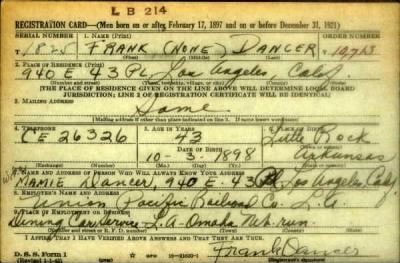 L B 214
REGISTRATION CARD—(Men born on or after February 17, 1897 and on or before December 31, 1921)
SERIAL NUMBER 1. NAME (Print) ORDER NUMBER
1825 FRANK (NONE) DANCER
(First) (Middle) (Last)
2. PLACE OF RESIDENCE (Print)
940 E 43 PL Los Angeles Calif
(Number and street) (Town, township, village, or city) (County) (State)
[THE PLACE OF RESIDENCE GIVEN ON THE LINE ABOVE WILL DETERMINE LOCAL BOARD
JURISDICTION; LINE 2 OF REGISTRATION CERTIFICATE WILL BE IDENTICAL]
3. MAILING ADDRESS
Same
[Mailing address if other than place indicated on line 2. If same insert word same]
4. TELEPHONE 5. AGE IN YEARS 6. PLACE OF BIRTH
CE 26326 43 Little Rock
DATE OF BIRTH (Town or county)
10-3-1898 Arkansas
(Exchange) (Number) (Mo.) (Day) (Yr.) (State or country)
7. NAME AND ADDRESS OF PERSON WHO WILL ALWAYS KNOW YOUR ADDRESS
Mamie Dancer, 940 E. 43 Pl Los Angeles Calif.
8. EMPLOYER'S NAME AND ADDRESS
Union Pacific Railroad Co. L.A.
9. PLACE OF EMPLOYMENT OR BUSINESS
Dining Car Service L.A-Omaha Neb. run
(Number and street or R. F. D. number) (Town) (County) (State)
I AFFIRM THAT I HAVE VERIFIED ABOVE ANSWERS AND THAT THEY ARE TRUE.
Frank Dancer
D. S. S. Form 1
(Revised 1-1-42) (over) 16—21630-1 (Registrant's signature)